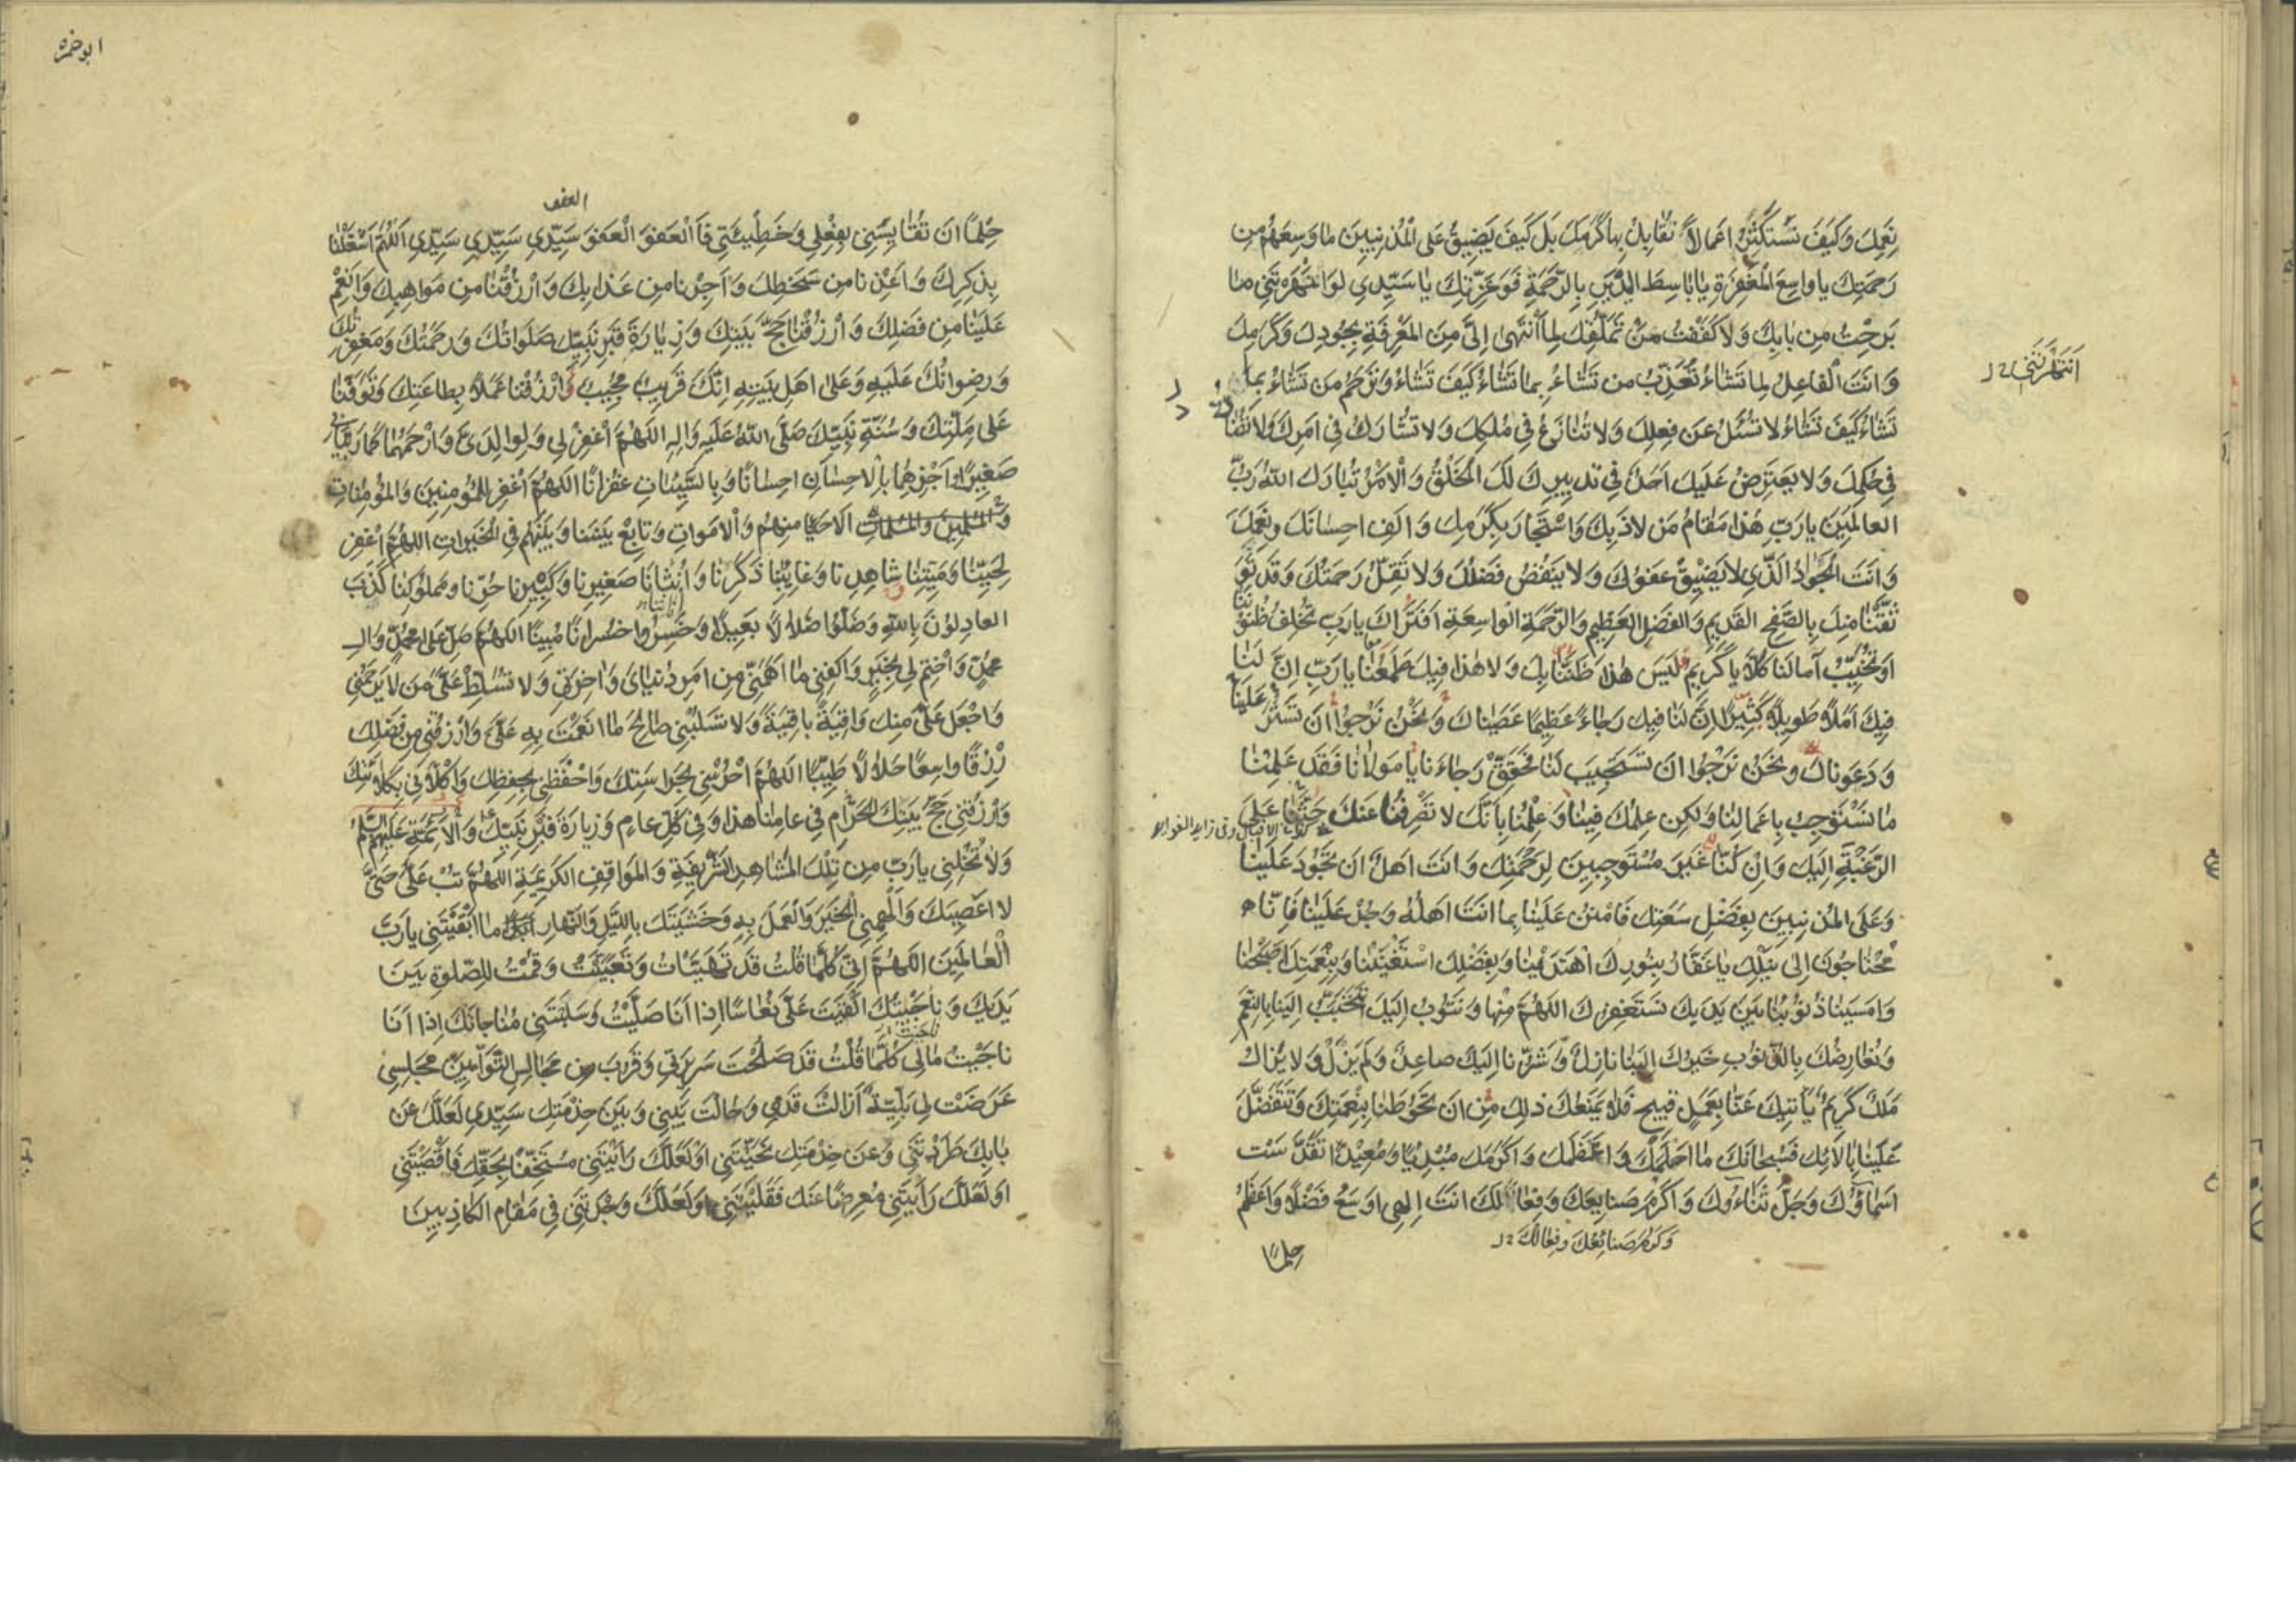 نِعَمِكَ وَكَيْفَ نَسْتَكْثِرُ اَعْمالاً نُقابِلُ بِها كَرَمَكَ بَلْ كَيْفَ يَضِيقُ عَلَى الْمُذْنِبِينَ ما وَسِعَهُمْ مِن
رَحْمَتِكَ يا واسِعَ الْمَغْفِرَةِ يا باسِطَ الْيَدَيْنِ بِالرَّحْمَةِ فَوَعِزَّتِكَ يا سَيِّدِي لَوِ انْتَهَرْتَنِي ما
بَرِحْتُ مِن بابِكَ وَلا كَفَفْتُ عَنْ تَمَلُّقِكَ لِما انْتَهى اِلَيَّ مِنَ الْمَعْرِفَةِ بِجُودِكَ وَكَرَمِكَ
اَنْتَهَرْتَنِي
وَاَنْتَ الْفاعِلُ لِما تَشاءُ تُعَذِّبُ مَن تَشاءُ بِما تَشاءُ كَيْفَ تَشاءُ وَتَرْحَمُ مَن تَشاءُ بِما
تَشاءُ كَيْفَ تَشاءُ لا تُسْئَلُ عَن فِعْلِكَ وَلا تُنازَعُ فِي مُلْكِكَ وَلا تُشارَكُ فِي اَمْرِكَ وَلا تُضادُّ
فِي حُكْمِكَ وَلا يَعْتَرِضُ عَلَيْكَ اَحَدٌ فِي تَدْبِيرِكَ لَكَ الْخَلْقُ وَالْاَمْرُ تَبارَكَ اللهُ رَبُّ
الْعالَمِينَ يارَبِّ هٰذا مَقامُ مَن لاذَ بِكَ وَاسْتَجارَ بِكَرَمِكَ وَاَلِفَ اِحْسانَكَ وَنِعَمَكَ
وَاَنْتَ الْجَوادُ الَّذِي لا يَضِيقُ عَفْوُكَ وَلا يَنْقُصُ فَضْلُكَ وَلا تَقِلُّ رَحْمَتُكَ وَقَدْ تَوَ
ثَّقْنا مِنْكَ بِالصَّفْحِ الْقَدِيمِ وَالْفَضْلِ الْعَظِيمِ وَالرَّحْمَةِ الْواسِعَةِ اَفَتَراكَ يارَبِّ تُخْلِفُ ظُنُونَنا
اَوْ تُخَيِّبُ آمالَنا كَلاّ يا كَرِيمُ لَيْسَ هٰذا ظَنُّنا بِكَ وَلا هٰذا فِيكَ طَمَعُنا يارَبِّ اِنَّ لَنا
فِيكَ اَمَلاً طَوِيلاً كَثِيرًا اِنَّ لَنا فِيكَ رَجاءً عَظِيمًا عَصَيْناكَ وَنَحْنُ نَرْجُوا اَن تَسْتُرَ عَلَيْنا
وَدَعَوْناكَ وَنَحْنُ نَرْجُوا اَن تَسْتَجِيبَ لَنا فَحَقِّقْ رَجاءَنا يا مَوْلانا فَقَدْ عَلِمْنا
ما نَسْتَوْجِبُ بِاَعْمالِنا وَلكِن عِلْمُكَ فِينا وَعِلْمُنا بِاَنَّكَ لا تَصْرِفُنا عَنْكَ حَثَّنا عَلَى
الرَّغْبَةِ اِلَيْكَ وَاِنْ كُنّا غَيْرَ مُسْتَوْجِبِينَ لِرَحْمَتِكَ وَاَنْتَ اَهْلٌ اَن تَجُودَ عَلَيْنا
وَعَلَى الْمُذْنِبِينَ بِفَضْلِ سَعَتِكَ فَامْنُنْ عَلَيْنا بِما اَنْتَ اَهْلُهُ وَجُدْ عَلَيْنا فَاِنّا
مُحْتاجُونَ اِلى نَيْلِكَ يا غَفّارُ بِنُورِكَ اهْتَدَيْنا وَبِفَضْلِكَ اسْتَغْنَيْنا وَبِنِعْمَتِكَ اَصْبَحْنا
وَاَمْسَيْنا ذُنُوبُنا بَيْنَ يَدَيْكَ نَسْتَغْفِرُكَ اللّهُمَّ مِنْها وَنَتُوبُ اِلَيْكَ تَتَحَبَّبُ اِلَيْنا بِالنِّعَمِ
وَنُعارِضُكَ بِالذُّنُوبِ خَيْرُكَ اِلَيْنا نازِلٌ وَشَرُّنا اِلَيْكَ صاعِدٌ وَلَمْ يَزَلْ وَلا يَزالُ
مَلَكٌ كَرِيمٌ يَأْتِيكَ عَنّا بِعَمَلٍ قَبِيحٍ فَلا يَمْنَعُكَ ذلِكَ مِن اَن تَحُوطَنا بِنِعْمَتِكَ وَتَتَفَضَّلَ
عَلَيْنا بِآلائِكَ فَسُبْحانَكَ ما اَحْلَمَكَ وَاَعْظَمَكَ وَاَكْرَمَكَ مُبْدِئًا وَمُعِيدًا تَقَدَّسَتْ
اَسْماؤُكَ وَجَلَّ ثَناءُوكَ وَاَكْرَمَ صَنايِعَكَ وَفِعالَكَ اَنْتَ اِلهِي اَوْسَعُ فَضْلاً وَاَعْظَمُ
وَكَرُمَ صَنائِعُكَ وَفِعالُكَ
حِلْمًا
ابوحمزه
العفو
حِلْمًا اَن تُقايِسَنِي بِفِعْلِي وَخَطِيئَتِي فَالْعَفْوَ الْعَفْوَ سَيِّدِي سَيِّدِي سَيِّدِي اَللّهُمَّ اَشْغِلْنا
بِذِكْرِكَ وَاَعِذْنا مِن سَخَطِكَ وَاَجِرْنا مِن عَذابِكَ وَارْزُقْنا مِن مَواهِبِكَ وَاَنْعِمْ
عَلَيْنا مِن فَضْلِكَ وَارْزُقْنا حَجَّ بَيْتِكَ وَزِيارَةَ قَبْرِ نَبِيِّكَ صَلَواتُكَ وَرَحْمَتُكَ وَمَغْفِرَتُكَ
وَرِضْوانُكَ عَلَيْهِ وَعَلى اَهْلِ بَيْتِهِ اِنَّكَ قَرِيبٌ مُجِيبٌ وَارْزُقْنا عَمَلاً بِطاعَتِكَ وَتَوَفَّنا
عَلى مِلَّتِكَ وَسُنَّةِ نَبِيِّكَ صَلَّى اللهُ عَلَيْهِ وَآلِهِ اللّهُمَّ اغْفِرْ لِي وَلِوالِدَيَّ وَارْحَمْهُما كَما رَبَّيانِي
صَغِيرًا وَاجْزِهِما بِالْاِحْسانِ اِحْسانًا وَبِالسَّيِّئاتِ غُفْرانًا اللّهُمَّ اغْفِرْ لِلْمُؤْمِنِينَ وَالْمُؤْمِناتِ
وَالْمُسْلِمِينَ وَالْمُسْلِماتِ الْاَحْياءِ مِنْهُمْ وَالْاَمْواتِ وَتابِعْ بَيْنَنا وَبَيْنَهُمْ فِي الْخَيْراتِ اللّهُمَّ اغْفِرْ
لِحَيِّنا وَمَيِّتِنا شاهِدِنا وَغائِبِنا ذَكَرِنا وَاُنْثانا صَغِيرِنا وَكَبِيرِنا حُرِّنا وَمَمْلُوكِنا كَذَبَ
الْعادِلُونَ بِاللهِ وَضَلُّوا ضَلالاً بَعِيدًا وَخَسِرُوا خُسْرانًا مُبِينًا اللّهُمَّ صَلِّ عَلى مُحَمَّدٍ وَآلِ
مُحَمَّدٍ وَاخْتِمْ لِي بِخَيْرٍ وَاكْفِنِي ما اَهَمَّنِي مِن اَمْرِ دُنْيايَ وَآخِرَتِي وَلا تُسَلِّطْ عَلَيَّ مَن لا يَرْحَمُنِي
وَاجْعَلْ عَلَيَّ مِنْكَ واقِيَةً باقِيَةً وَلا تَسْلُبْنِي صالِحَ ما اَنْعَمْتَ بِهِ عَلَيَّ وَارْزُقْنِي مِن فَضْلِكَ
رِزْقًا واسِعًا حَلالاً طَيِّبًا اللّهُمَّ احْرُسْنِي بِحَراسَتِكَ وَاحْفَظْنِي بِحِفْظِكَ وَاكْلَأْنِي بِكَلاءَتِكَ
وَارْزُقْنِي حَجَّ بَيْتِكَ الْحَرامِ فِي عامِنا هذا وَفِي كُلِّ عامٍ وَزِيارَةَ قَبْرِ نَبِيِّكَ وَالْاَئِمَّةِ عَلَيْهِمُ السَّلامُ
وَلا تُخْلِنِي يارَبِّ مِن تِلْكَ الْمَشاهِدِ الشَّرِيفَةِ وَالْمَواقِفِ الْكَرِيمَةِ اللّهُمَّ تُبْ عَلَيَّ حَتّى
لا اَعْصِيَكَ وَاَلْهِمْنِي الْخَيْرَ وَالْعَمَلَ بِهِ وَخَشْيَتَكَ بِاللَّيْلِ وَالنَّهارِ ما اَبْقَيْتَنِي يارَبَّ
الْعالَمِينَ اللّهُمَّ اِنِّي كُلَّما قُلْتُ قَدْ تَهَيَّأْتُ وَتَعَبَّيْتُ وَقُمْتُ لِلصَّلوةِ بَيْنَ
يَدَيْكَ وَناجَيْتُكَ اَلْقَيْتَ عَلَيَّ نُعاسًا اِذا اَنَا صَلَّيْتُ وَسَلَبْتَنِي مُناجاتَكَ اِذا اَنَا
ناجَيْتُ مالِي كُلَّما قُلْتُ قَدْ صَلُحَتْ سَرِيرَتِي وَقَرُبَ مِن مَجالِسِ التَّوّابِينَ مَجْلِسِي
عَرَضَتْ لِي بَلِيَّةٌ اَزالَتْ قَدَمِي وَحالَتْ بَيْنِي وَبَيْنَ خِدْمَتِكَ سَيِّدِي لَعَلَّكَ عَن
بابِكَ طَرَدْتَنِي وَعَن خِدْمَتِكَ نَحَّيْتَنِي اَوْ لَعَلَّكَ رَاَيْتَنِي مُسْتَخِفًّا بِحَقِّكَ فَاَقْصَيْتَنِي
اَوْ لَعَلَّكَ رَاَيْتَنِي مُعْرِضًا عَنْكَ فَقَلَيْتَنِي اَوْ لَعَلَّكَ وَجَدْتَنِي فِي مَقامِ الْكاذِبِينَ